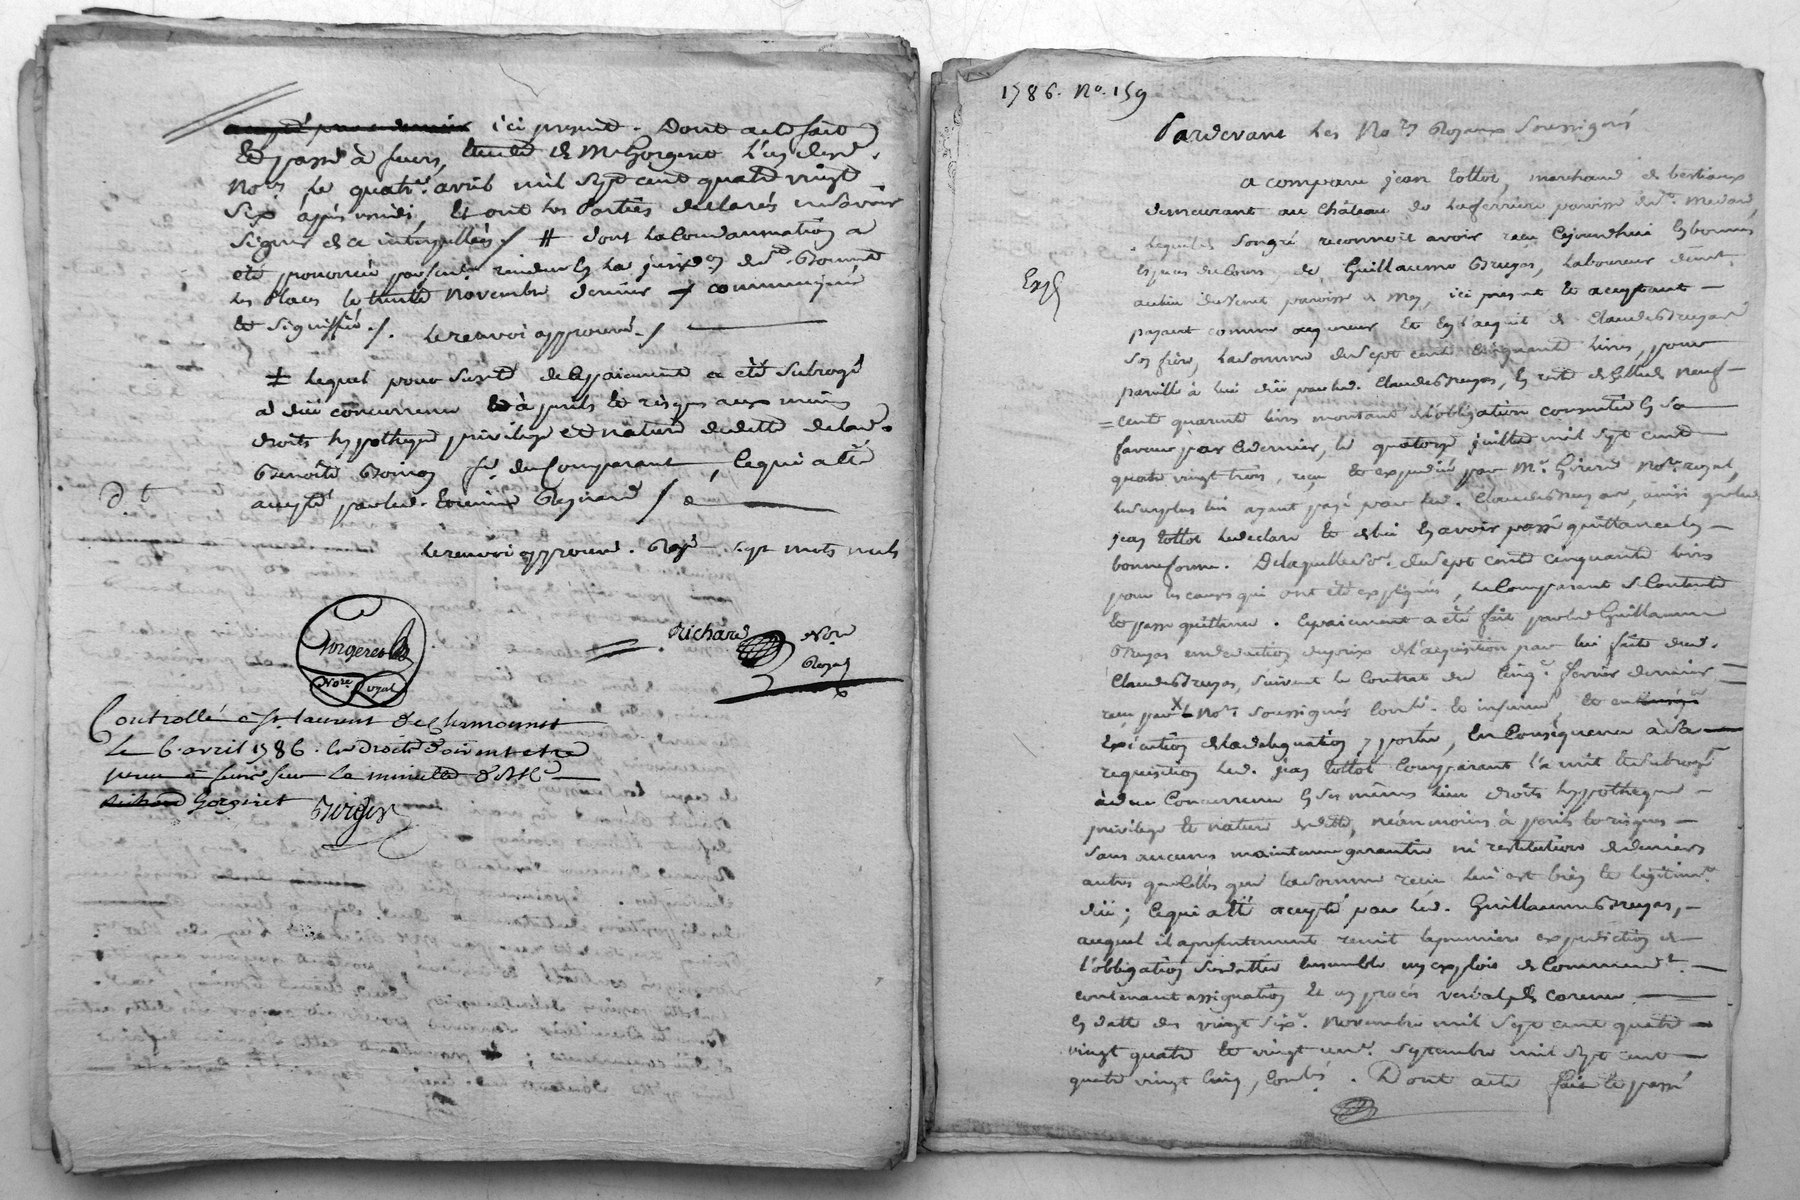 ici présent. Dont acte fait
et passé à feurs, étude de Me Gorgeret l'un desd.
Nores le quatre. avril mil sept cent quatre vingt
six après midi, et ont les Parties déclarés ne savoir
signer de ce interpellés ./ # dont la Condamnation a
été prononcée par
les Places le trente Novembre dernier communiquée
et signiffiée ./. le renvoi approuvé ./
‡ lequel pour sureté de ce paiement a été subrogé
à düe concurrence et à perils et risques aux mêmes
droits hypotheque privilege et nature de dette de lad.
Benoite fe. du Comparant, ce qui a été
accepté par led. /
d.t
le renvoi approuvé. sept mots nuls
Gorgeret
Nore Royal
Richard
Nore
Royal
Controllé à St. Laurent de Chamousset
le 6. avril 1786. les Droits doivent etre
perçu à feurs sur la minute de Me.
Gorgeret
1786. No. 159
Pardevant les Nores Royaux Soussignés
a comparu jean tottot, marchand de bestiaux
demeurant au Château de Laferriere paroisse de St. Medard,
lequel de son gré reconnoit avoir reçu cejourdhui en bonnes
espèces de cours, de Guillaume Bruyas, laboureur demt.
Exp
au lieu paroisse de ici present et acceptant
payant comme acquereur et en l'acquit de Claude Bruyas
son frère, la somme de sept cent cinquante livres, pour
pareille à lui düe par led. Claude Bruyas, en reste de celle de neuf
cent quarante livres montant de l'obligation consentie en sa
faveur par ce dernier, le quatorze juillet mil sept cent
quatre vingt trois, reçue et expediée par Me. Girard Nore royal,
le surplus lui ayant payé par led. Claude Bruyas, ainsi que led.
jean tottot le declare et de lui en avoir passé quittance en
bonne forme. De laquelle so.e de sept cent cinquante livres
pour les causes qui ont été expliquées, le Comparant se Contente
et passe quittance. Ce paiement a été fait par led Guillaume
Bruyas en deduction du prix de l'acquisition par lui faite dud.
Claude Bruyas, suivant le Contrat du cinq. fevrier dernier
reçu par les Nores soussignés Controlé et insinué, et en
execution de la delegation y portée, En Conséquence à sa
requisition led. jean tottot Comparant l'a mit et subrogé
à düe Concurrence en ses mêmes lieu droits hypotheque
privilege et nature de dette, néanmoins à perils et risques
sans aucune maintenue garantie ni restitution de deniers
autres que celles que la somme reçue lui est bien et legitimt.
düe; ce qui a été accepté par led. Guillaume Bruyas,
auquel il a presentement remit la premiere expedition de
l'obligation susdattée ensemble un exploit de Commendt.
contenant assignation et un procés verbal de carence
en datte des vingt six. Novembre mil sept cent quatre
vingt quatre et vingt un. septembre mil sept cent
quatre vingt cinq, Contés. Dont acte fait et passé